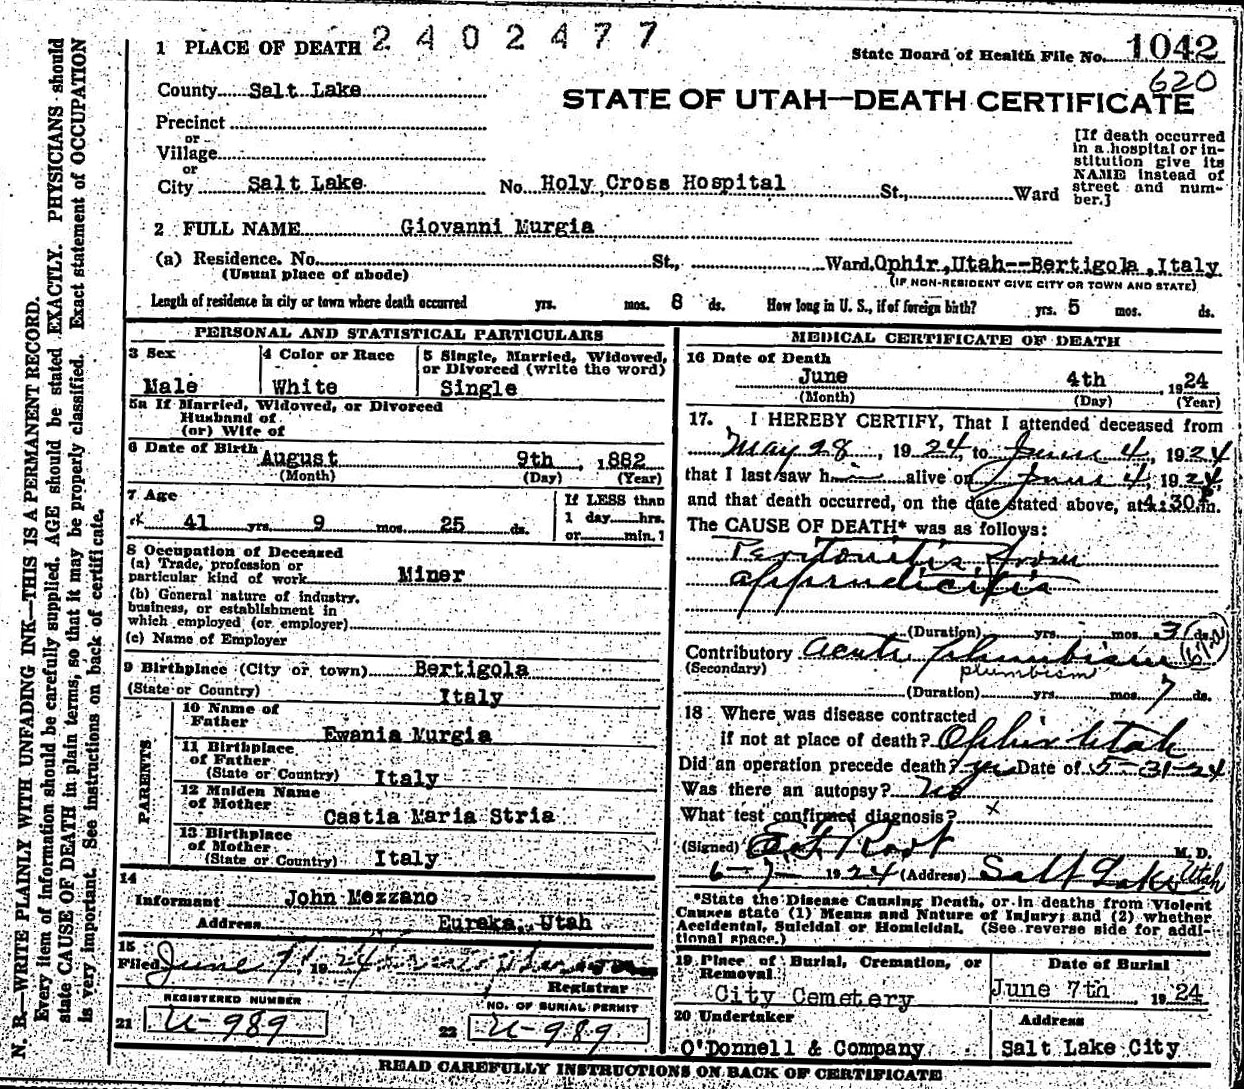 2402477
1 PLACE OF DEATH
State Board of Health File No. 1042
620
County Salt Lake
STATE OF UTAH—DEATH CERTIFICATE
Precinct
or
Village
or
City Salt Lake No. Holy Cross Hospital St., Ward
[If death occurred
in a hospital or in-
stitution give its
NAME instead of
street and num-
ber.]
2 FULL NAME Giovanni Murgia
(a) Residence. No. St., Ward, Ophir, Utah--Bertigola, Italy
(Usual place of abode) (IF NON-RESIDENT GIVE CITY OR TOWN AND STATE)
Length of residence in city or town where death occurred yrs. mos. 8 ds. How long in U. S., if of foreign birth? yrs. 5 mos. ds.
PERSONAL AND STATISTICAL PARTICULARS
3 Sex
Male
4 Color or Race
White
5 Single, Married, Widowed,
or Divorced (write the word)
Single
5a If Married, Widowed, or Divorced
Husband of
(or) Wife of
6 Date of Birth August 9th, 1882
(Month) (Day) (Year)
7 Age
41 yrs. 9 mos. 25 ds.
If LESS than
1 day hrs.
or min.?
8 Occupation of Deceased
(a) Trade, profession or
particular kind of work Miner
(b) General nature of industry,
business, or establishment in
which employed (or employer)
(c) Name of Employer
9 Birthplace (City or town) Bertigola
(State or Country) Italy
PARENTS
10 Name of
Father
Ewania Murgia
11 Birthplace
of Father
(State or Country) Italy
12 Maiden Name
of Mother
Castia Maria Stria
13 Birthplace
of Mother
(State or Country) Italy
14
Informant John Mezzano
Address Eureka, Utah
15
Filed June 7, 1924
Registrar
REGISTERED NUMBER
21 U-989
NO. OF BURIAL PERMIT
22 U-989
MEDICAL CERTIFICATE OF DEATH
16 Date of Death
June 4th, 1924
(Month) (Day) (Year)
17. I HEREBY CERTIFY, That I attended deceased from
May 28, 1924, to June 4, 1924
that I last saw h alive on June 4, 1924
and that death occurred, on the date stated above, at 4:30 P m.
The CAUSE OF DEATH* was as follows:
Peritonitis from
appendicitis
(Duration) yrs. mos. 3 ds.
Contributory Acute plumbism
(Secondary) plumbism
(Duration) yrs. mos. 7 ds.
18 Where was disease contracted
if not at place of death? Ophir Utah
Did an operation precede death? yes Date of 5-31-24
Was there an autopsy? No
What test confirmed diagnosis? x
(Signed) E.F. Root M. D.
6-7- 1924 (Address) Salt Lake Utah
*State the Disease Causing Death, or in deaths from Violent
Causes state (1) Means and Nature of Injury; and (2) whether
Accidental, Suicidal or Homicidal. (See reverse side for addi-
tional space.)
19 Place of Burial, Cremation, or
Removal
City Cemetery
Date of Burial
June 7th, 1924
20 Undertaker
O'Donnell & Company
Address
Salt Lake City
READ CAREFULLY INSTRUCTIONS ON BACK OF CERTIFICATE
N. B.—WRITE PLAINLY WITH UNFADING INK—THIS IS A PERMANENT RECORD.
Every item of information should be carefully supplied. AGE should be stated EXACTLY. PHYSICIANS should
state CAUSE OF DEATH in plain terms, so that it may be properly classified. Exact statement of OCCUPATION
is very important. See instructions on back of certificate.